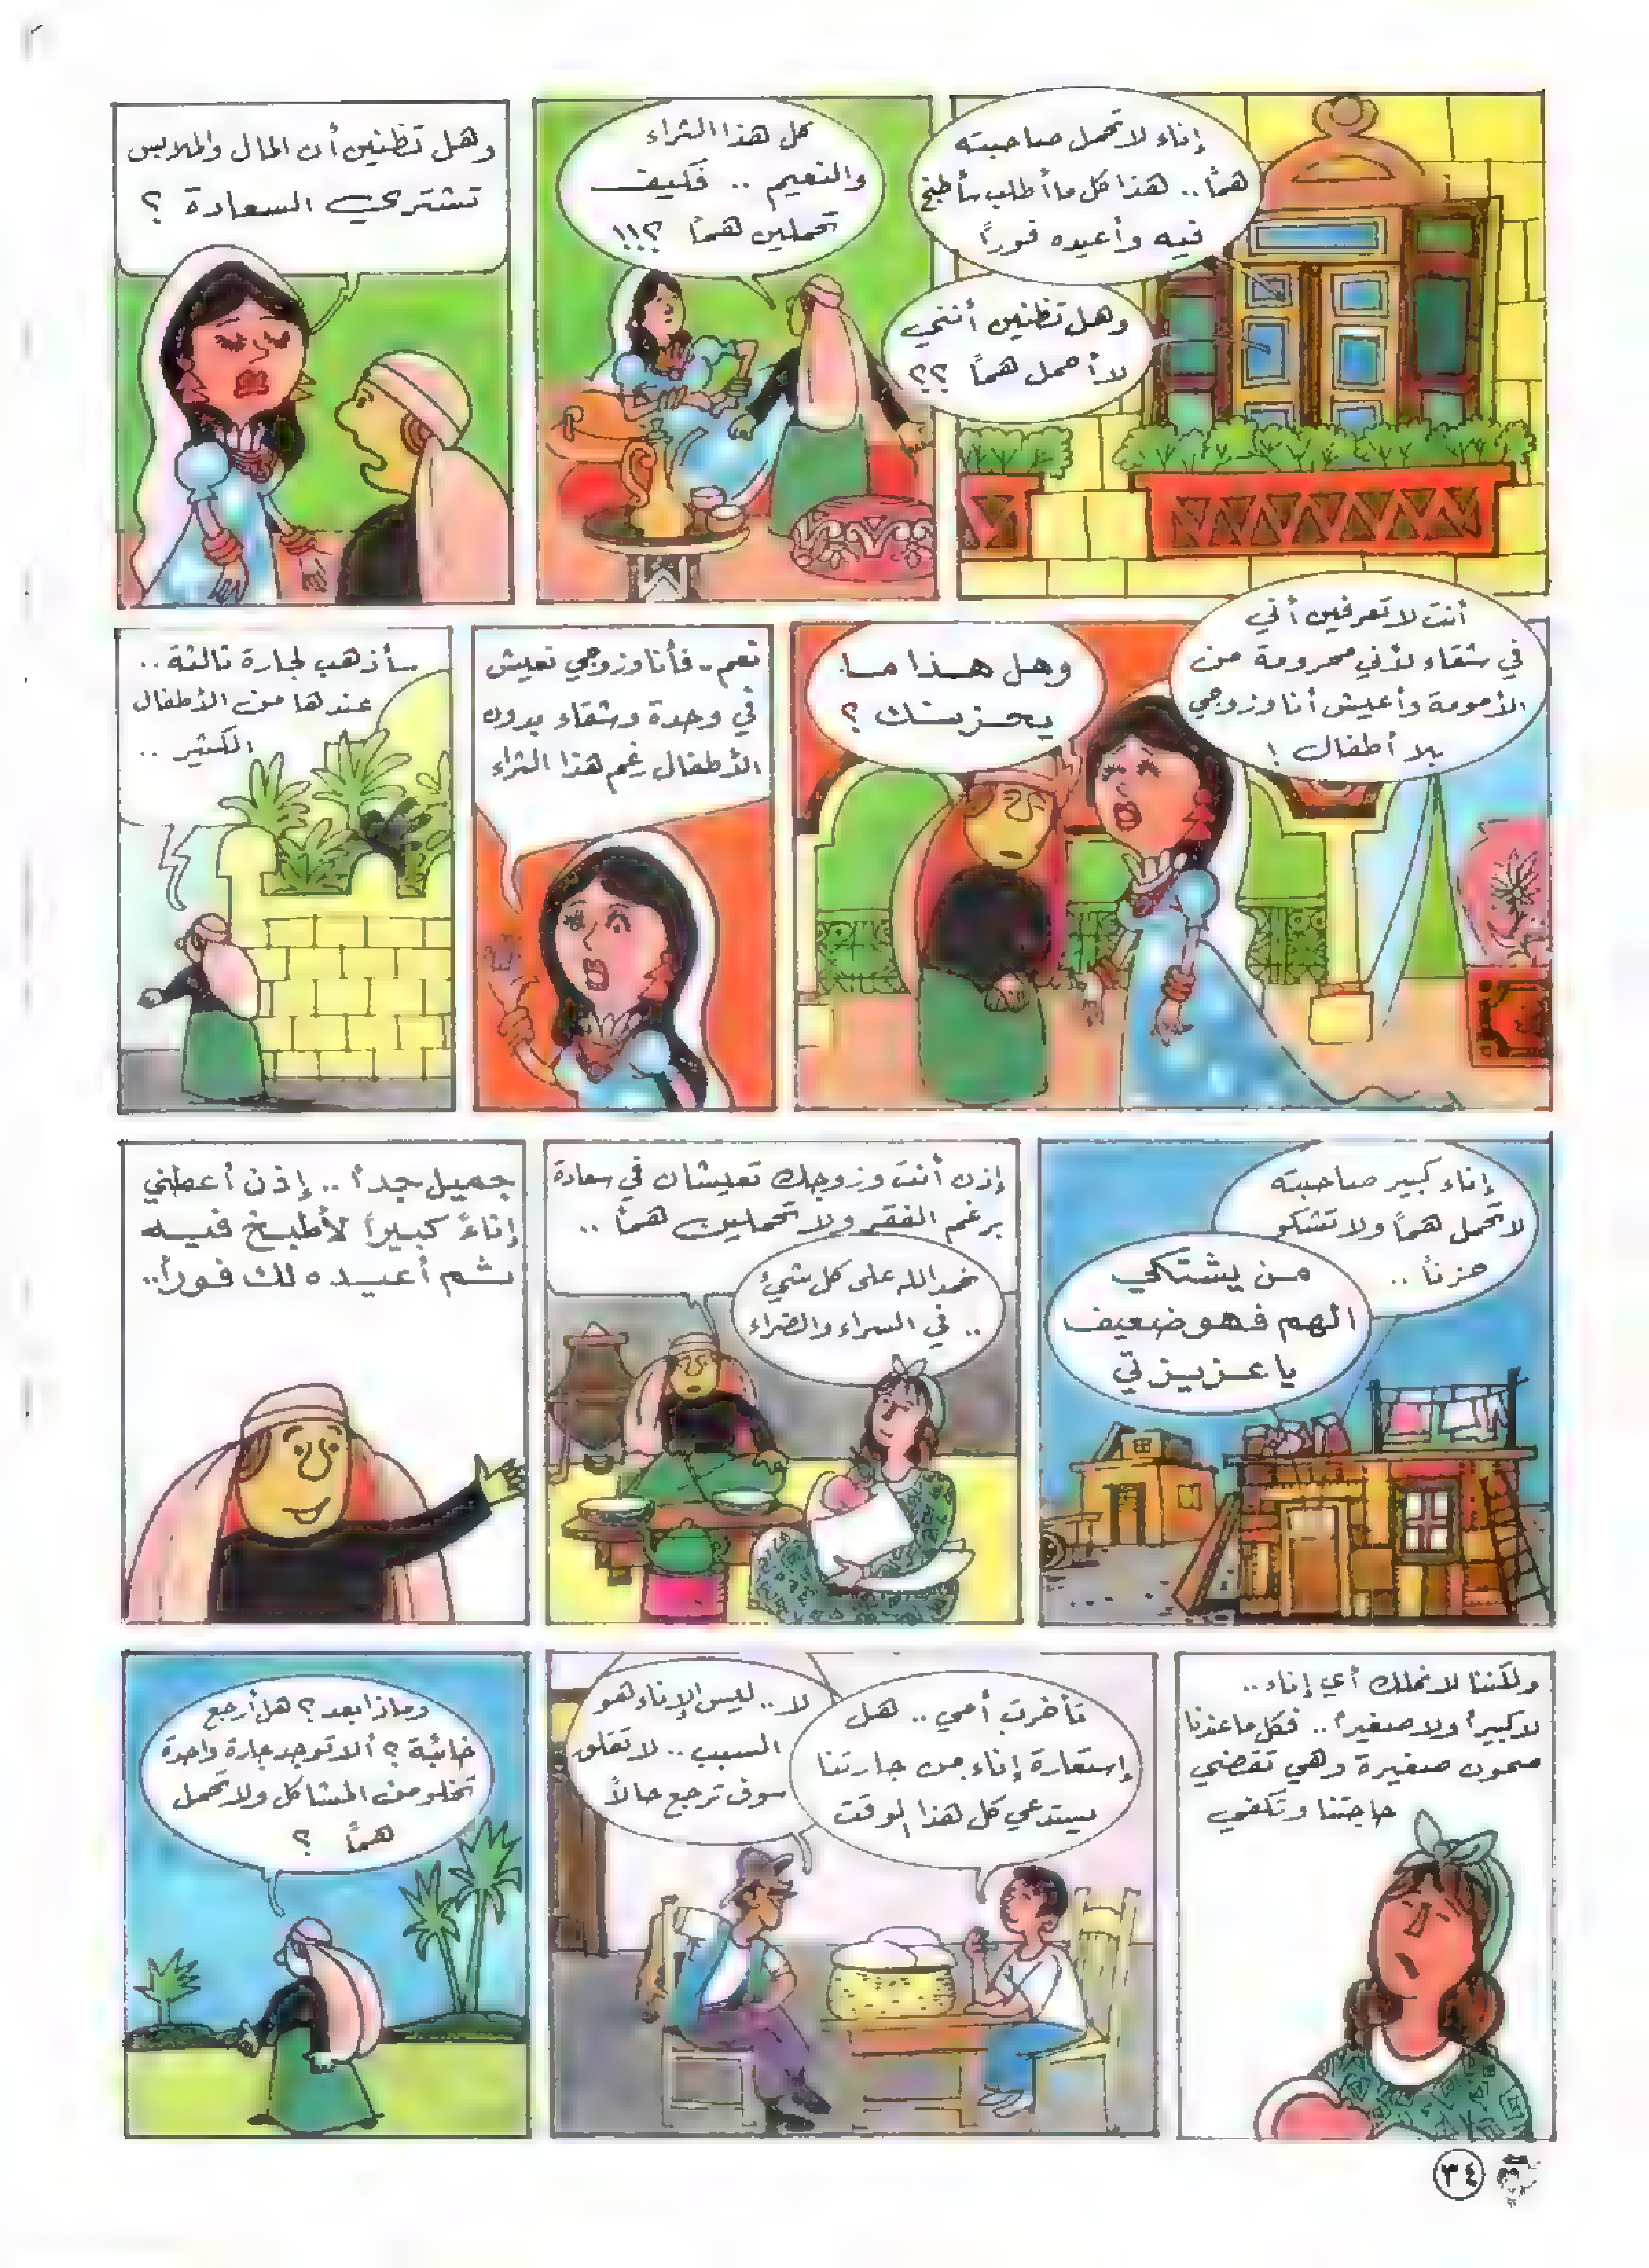 إناء لا تحمل صاحبته
همّاً.. هذا كل ما أطلب سأطبخ
فيه وأعيده فوراً
وهل تظنين أنني
لا أحمل همّاً ؟؟
كل هذا الثراء
والنعيم .. فكيف
تحملين همّاً ؟!!
وهل تظنين أن المال والملابس
تشتري السعادة ؟
أنت لا تعرفين أني
في شقاء لأني محرومة من
الأمومة وأعيش أنا وزوجي
بلا أطفال !
وهل هذا ما
يحزنك ؟
نعم.. فأنا وزوجي نعيش
في وحدة وشقاء بدون
الأطفال رغم هذا الثراء
سأذهب لجارة ثالثة ..
عندها من الأطفال
الكثير ..
إناء كبير صاحبته
لا تحمل همّاً ولا تشكو
حزناً ..
من يشتكي
الهم فهو ضعيف
يا عزيزتي
إذن أنت وزوجك تعيشان في سعادة
برغم الفقر ولا تحملين همّاً ..
نحمد الله على كل شيء
.. في السراء والضراء
جميل جداً .. إذن أعطني
إناءً كبيراً لأطبخ فيه
ثم أعيده لك فوراً..
ولكننا لا نملك أي إناء..
لا كبيراً ولا صغيراً .. فكل ما عندنا
صحون صغيرة وهي تقضي
حاجتنا وتكفي
تأخرت أمي .. هل
إستعارة إناء من جارتنا
يستدعي كل هذا الوقت
لا .. ليس الإناء هو
السبب .. لا تقلق
سوف ترجع حالاً
وماذا بعد ؟ هل أرجع
خائبة ؟ ألا توجد جارة واحدة
تخلو من المشاكل ولا تحمل
همّاً ؟
٣٤